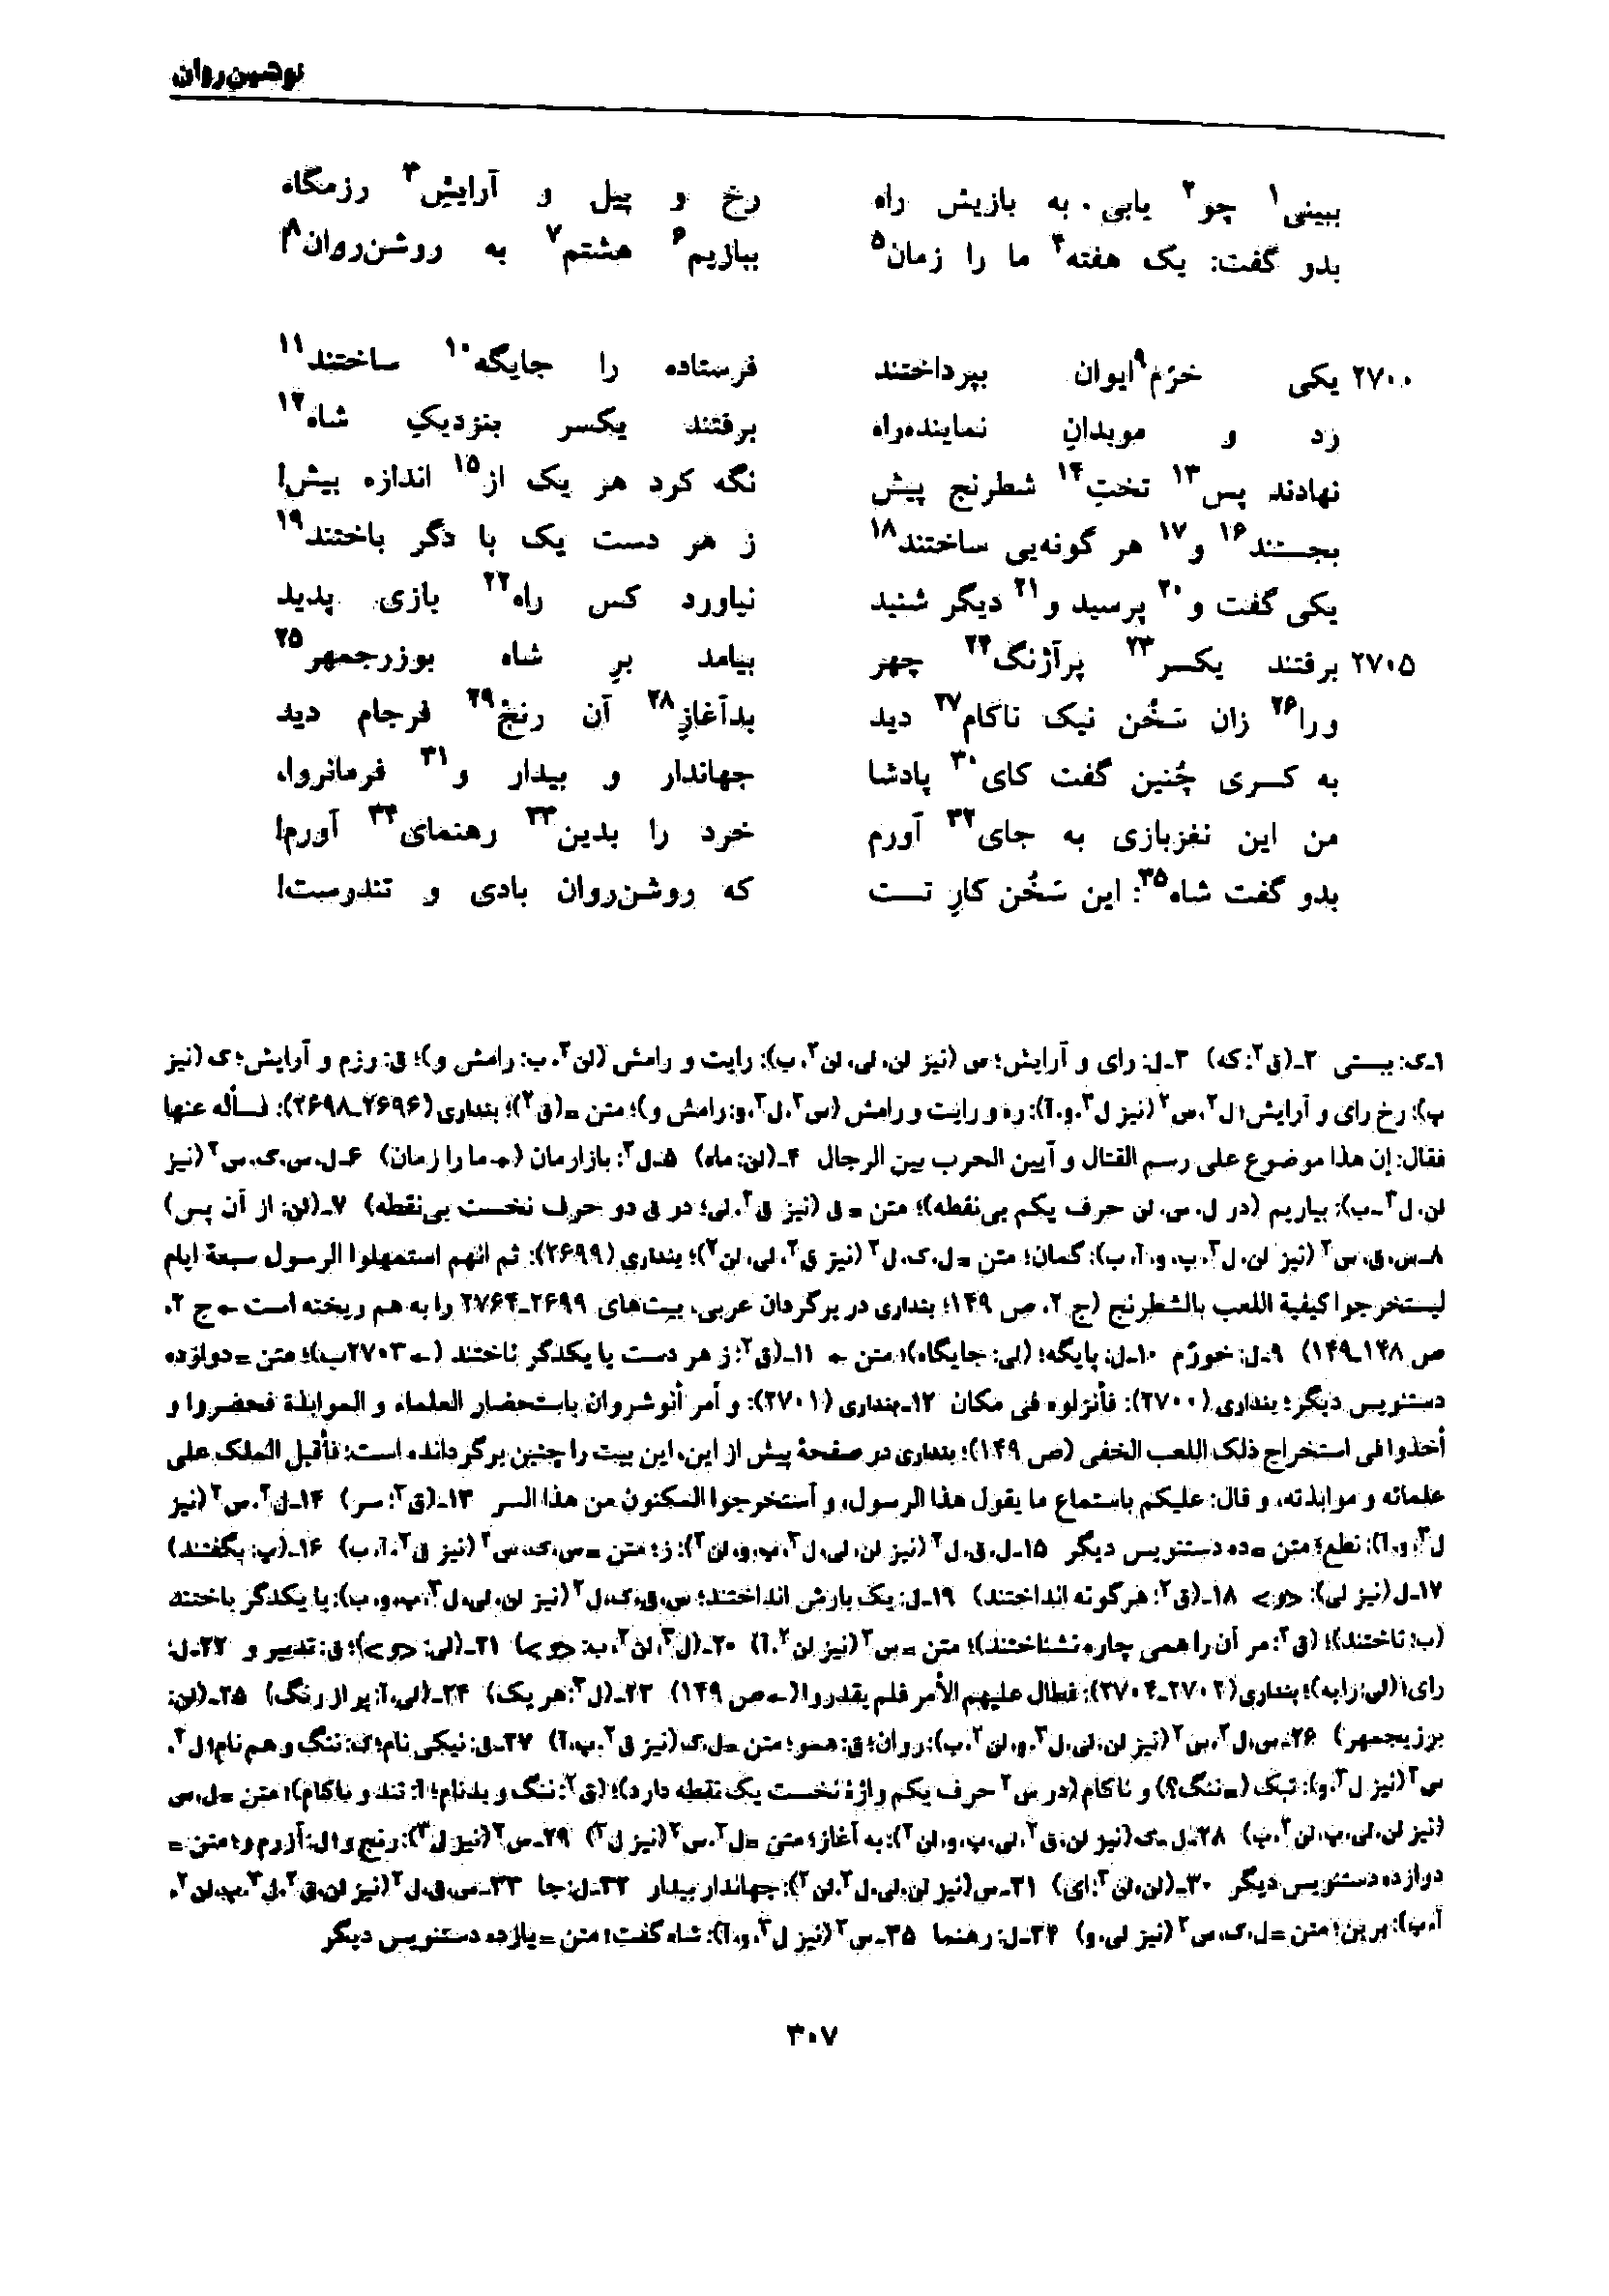 نوشین‌روان
ببینی۱ چو۲ یابی، به بازیش راه رخ و پیل و آرایش۳ رزمگاه
بدو گفت: یک هفته۴ ما را زمان۵ ببازیم۶ هشتم۷ به روشن‌روان۸!
۲۷۰۰ یکی خرّم۹ ایوان بپرداختند فرستاده را جایگه۱۰ ساختند۱۱
رد و موبدانِ نماینده‌راه برفتند یکسر بنزدیکِ شاه۱۲
نهادند پس۱۳ تختِ۱۴ شطرنج پیش نگه کرد هر یک از۱۵ اندازه بیش!
بجستند۱۶ و۱۷ هر گونه‌یی ساختند۱۸ ز هر دست یک با دگر باختند۱۹
یکی گفت و۲۰ پرسید و۲۱ دیگر شنید نیاورد کس راه۲۲ بازی پدید
۲۷۰۵ برفتند یکسر۲۳ پرآژنگ۲۴ چهر بیامد برِ شاه بوزرجمهر۲۵
ورا۲۶ زان سَخُن نیک ناکام۲۷ دید بدآغازِ۲۸ آن رنج۲۹ فرجام دید
به کسری چُنین گفت کای۳۰ پادشا جهاندار و بیدار و۳۱ فرمانروا،
من این نغزبازی به جای۳۲ آورم خرد را بدین۳۳ رهنمای۳۴ آورم!
بدو گفت شاه۳۵: این سَخُن کارِ تست که روشن‌روان بادی و تندرست!
۱ـ ک: بستی ۲ـ (ق۲: که) ۳ـ ل: رای و آرایش؛ س (نیز لن، لی، لن۲، ب): رایت و رامش (لن۲، ب: رامش و)؛ ق: رزم و آرایش؛ ک (نیز
پ): رخ رای و آرایش؛ ل۲، س۲ (نیز ل۳، و، آ): ره و رایت و رامش (س۲، ل۳، و: رامش و)؛ متن = (ق۲)؛ بنداری (۲۶۹۶ـ۲۶۹۸): فسأله عنها
فقال: إن هذا موضوع علی رسم القتال و آیین الحرب بین الرجال ۴ـ (لن: ماه) ۵ـ ل۲: بازارمان (← ما را زمان) ۶ـ ل، س، ک، س۲ (نیز
لن، ل۳ـ ب): بیاریم (در ل، س، لن حرف یکم بی‌نقطه)؛ متن = ق (نیز ق۲، لی؛ در ق دو حرف نخست بی‌نقطه) ۷ـ (لن: از آن پس)
۸ـ س، ق، س۲ (نیز لن، ل۳، پ، و، آ، ب): گمان؛ متن = ل، ک، ل۲ (نیز ق۲، لی، لن۲)؛ بنداری (۲۶۹۹): ثم انهم استمهلوا الرسول سبعة ایام
لیستخرجوا کیفیة اللعب بالشطرنج (ج ۲، ص ۱۴۹؛ بنداری در برگردان عربی، بیت‌های ۲۶۹۹ـ۲۷۶۴ را به هم ریخته است ← ج ۲،
ص ۱۴۸ـ۱۴۹) ۹ـ ل: خورّم ۱۰ـ ل: پایگه؛ (لی: جایگاه)؛ متن ← ۱۱ـ (ق۲: ز هر دست یا یکدگر تاختند (← ۲۷۰۳ب)؛ متن = دوازده
دستنویس دیگر؛ بنداری (۲۷۰۰): فأنزلوه فی مکان ۱۲ـ بنداری (۲۷۰۱): و أمر أنوشروان باستحضار العلماء و الموابذة فحضروا و
أخذوا فی استخراج ذلک اللعب الخفی (ص ۱۴۹)؛ بنداری در صفحهٔ پیش از این، این بیت را چنین برگردانده است: فأقبل الملک علی
علمائه و موابذته، و قال: علیکم باستماع ما یقول هذا الرسول، و أستخرجوا المکنون من هذا السر ۱۳ـ (ق۲: سر) ۱۴ـ ل۲، س۲ (نیز
ل۳، و، آ): نطع؛ متن = ده دستنویس دیگر ۱۵ـ ل، ق، ل۲ (نیز لن، لی، ل۳، پ، و، لن۲): ز؛ متن = س، ک، س۲ (نیز ق۲، آ، ب) ۱۶ـ (پ: بگفتند)
۱۷ـ ل (نیز لی): <و> ۱۸ـ (ق۲: هر گونه انداختند) ۱۹ـ ل: یک بارش انداختند؛ س، ق، ک، ل۲ (نیز لن، لی، ل۳، پ، و، ب): با یکدگر باختند
(ب: تاختند)؛ (ق۲: مر آن را همی چاره نشناختند)؛ متن = س۲ (نیز لن۲، آ) ۲۰ـ (ل۳، لن۲، ب: <و>) ۲۱ـ (لی: <و>)؛ ق: تدبیر و ۲۲ـ ل:
رای؛ (لی: رایه)؛ بنداری (۲۷۰۲ـ۲۷۰۴): فطال علیهم الأمر فلم یقدروا (← ص ۱۴۹) ۲۳ـ (ل۳: هر یک) ۲۴ـ (لی، آ: پر از رنگ) ۲۵ـ (لن:
برزیجمهر) ۲۶ـ س، ل۲، س۲ (نیز لن، لی، ل۳، و، لن۲، ب): روان؛ ق: همو؛ متن = ل، ک (نیز ق۲، پ، آ) ۲۷ـ ق: نیکی نام؛ ک: ننگ و هم نام؛ ل۲،
س۲ (نیز ل۳، و): تبک (= ننگ؟) و ناکام (در س۲ حرف یکم واژهٔ نخست یک نقطه دارد)؛ (ق۲: ننگ و بدنام؛ آ: تند و باکام)؛ متن = ل، س
(نیز لن، لی، پ، لن۲، ب) ۲۸ـ ل ـ ک (نیز لن، ق۲، لی، پ، و، لن۲): به آغاز؛ متن = ل۲، س۲ (نیز ل۳) ۲۹ـ س۲ (نیز ل۳): رنج و؛ ل: آزرم و؛ متن =
دوازده دستنویس دیگر ۳۰ـ (لن، لن۲: ای) ۳۱ـ س (نیز لن، لی، ل۳، لن۲): جهاندار بیدار ۳۲ـ ل: جا ۳۳ـ س، ق، ل۲ (نیز لن، ق۲، ل۳، پ، لن۲،
آ، ب): برین؛ متن = ل، ک، س۲ (نیز لی، و) ۳۴ـ ل: رهنما ۳۵ـ س۲ (نیز ل۳، و، آ): شاه گفت؛ متن = یازده دستنویس دیگر
۳۰۷